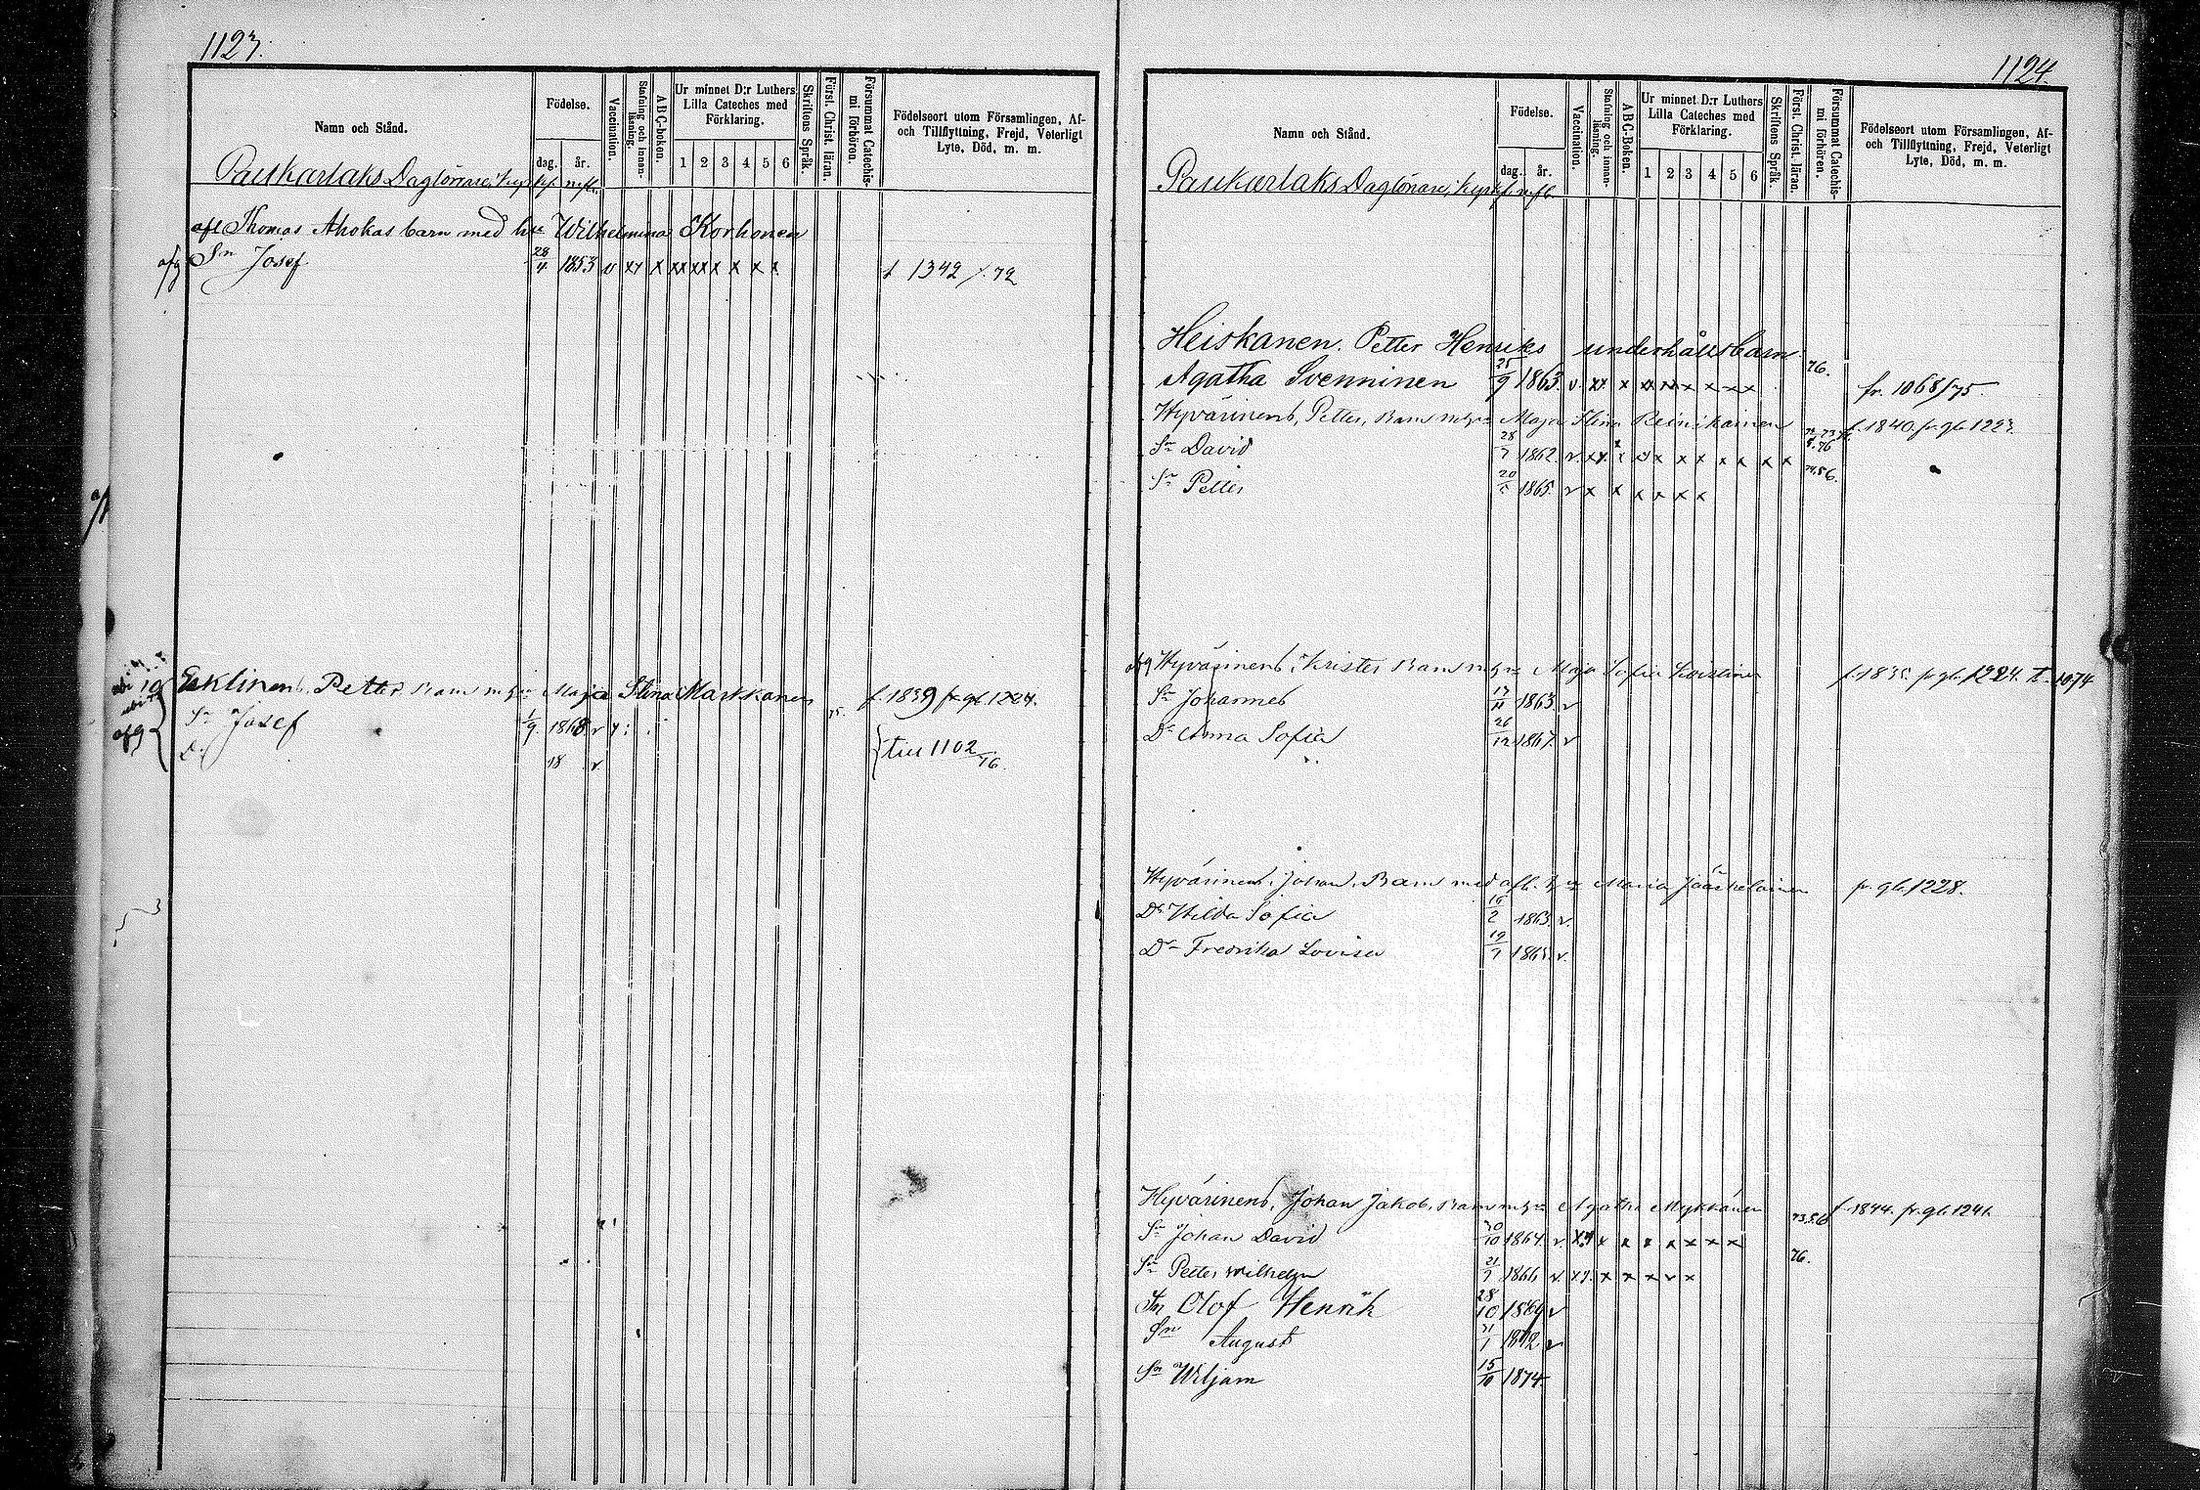 1123.
Namn och Stånd.
Födelse.
dag. år.
Vaccination.
Stafning och innan-läsning.
ABC-boken.
Ur minnet D:r Luthers Lilla Cateches med Förklaring.
1 2 3 4 5 6
Skriftens Språk.
Först. Christ. läran.
Försummat Catechismi förhören.
Födelseort utom Församlingen, Af- och Tillflyttning, Frejd, Veterligt Lyte, Död, m. m.
Paukarlaks Daglönare,
afl Thomas Ahokas barn med hu Wilhelmina Korhonen
afg Sn Josef 28/4 1853 v xx x xx xx x x x x 1342 /. 72
Petter Barn m Maja Stina Markkanen f. 1839 fr. gb. 1224.
afg Sn Josef 1/9 1868 v
D. 18 v. till 1102/76.
1124.
Namn och Stånd.
Födelse.
dag. år.
Vaccination.
Stafning och innan-läsning.
ABC-Boken.
Ur minnet D:r Luthers Lilla Cateches med Förklaring.
1 2 3 4 5 6
Skriftens Språk.
Först. Christ. läran.
Försummat Catechismi förhören.
Födelseort utom Församlingen, Af- och Tillflyttning, Frejd, Veterligt Lyte, Död, m. m.
Paukarlaks Daglönare,
Heiskanen. Petter Henriks underhållsbarn
Agatha Svenninen 25/9 1863. v. xx x xx x x x x x 76. fr. 1068/75
Hyvärinens, Petter, Barn m Maja Stina Reinikainen f. 1840. fr. gb. 1223.
Sn David 28/7 1862. v.
Sn Petter 1865. v x x x x x x
afg Hyvärinens, Krister Barn m Maja Sofia fr. gb. 1224. T. 1074
Sn Johannes 17/11 1863. v
Dr Anna Sofia 26/12 1867. v
Hyvärinens, Johan, Barn med afl. Maria Jääskeläinen fr. gb. 1228.
Dr Hilda Sofia 16/2 1863. v.
Dr Fredrika Lovisa 19/7 1865. v.
Hyvärinens, Johan Jakob, Barn m Agatha Mykkänen f. 1844. fr. gb. 1241.
Sn Johan David 30/10 1864. v.
Sn Petter Wilhelm 21/7 1866 v. 76.
Sn Olof Henrik 28/10 1869 v
Sn August 31/1 1872 v
Sn Wiljam 15/10 1874.